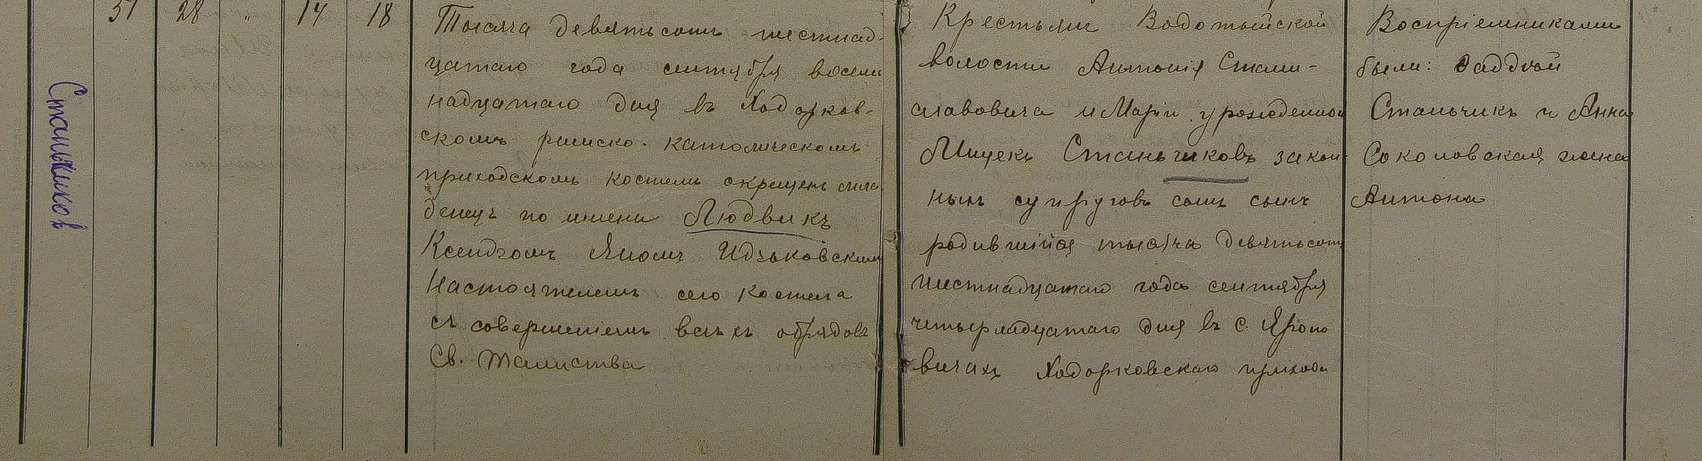 Станьчиков
51 28 " 14 18
Тысяча девятьсот шестнад-
цатаго года сентября восем
надцатаго дня въ Ходорков-
скомъ римско-католическомъ
приходскомъ костелѣ окрещенъ мла
денецъ по имени Людвикъ
Ксендзомъ Яномъ Идзьковскимъ
Настоятелемъ сего костела
съ совершеніемъ всѣхъ обрядовъ
Св. Таинства
Крестьянъ Водотыйской
волости Антонія Стани-
славовича и Маріи урожденной
Станьчиковъ закон-
ныхъ супруговъ сынъ
родившійся тысяча девятьсотъ
шестнадцатаго года сентября
четырнадцатаго дня въ с. Яропо
вичахъ Ходорковскаго прихода
Воспріемниками
были: Фаддей
Станьчикъ и Анна
Соколовская жена
Антона